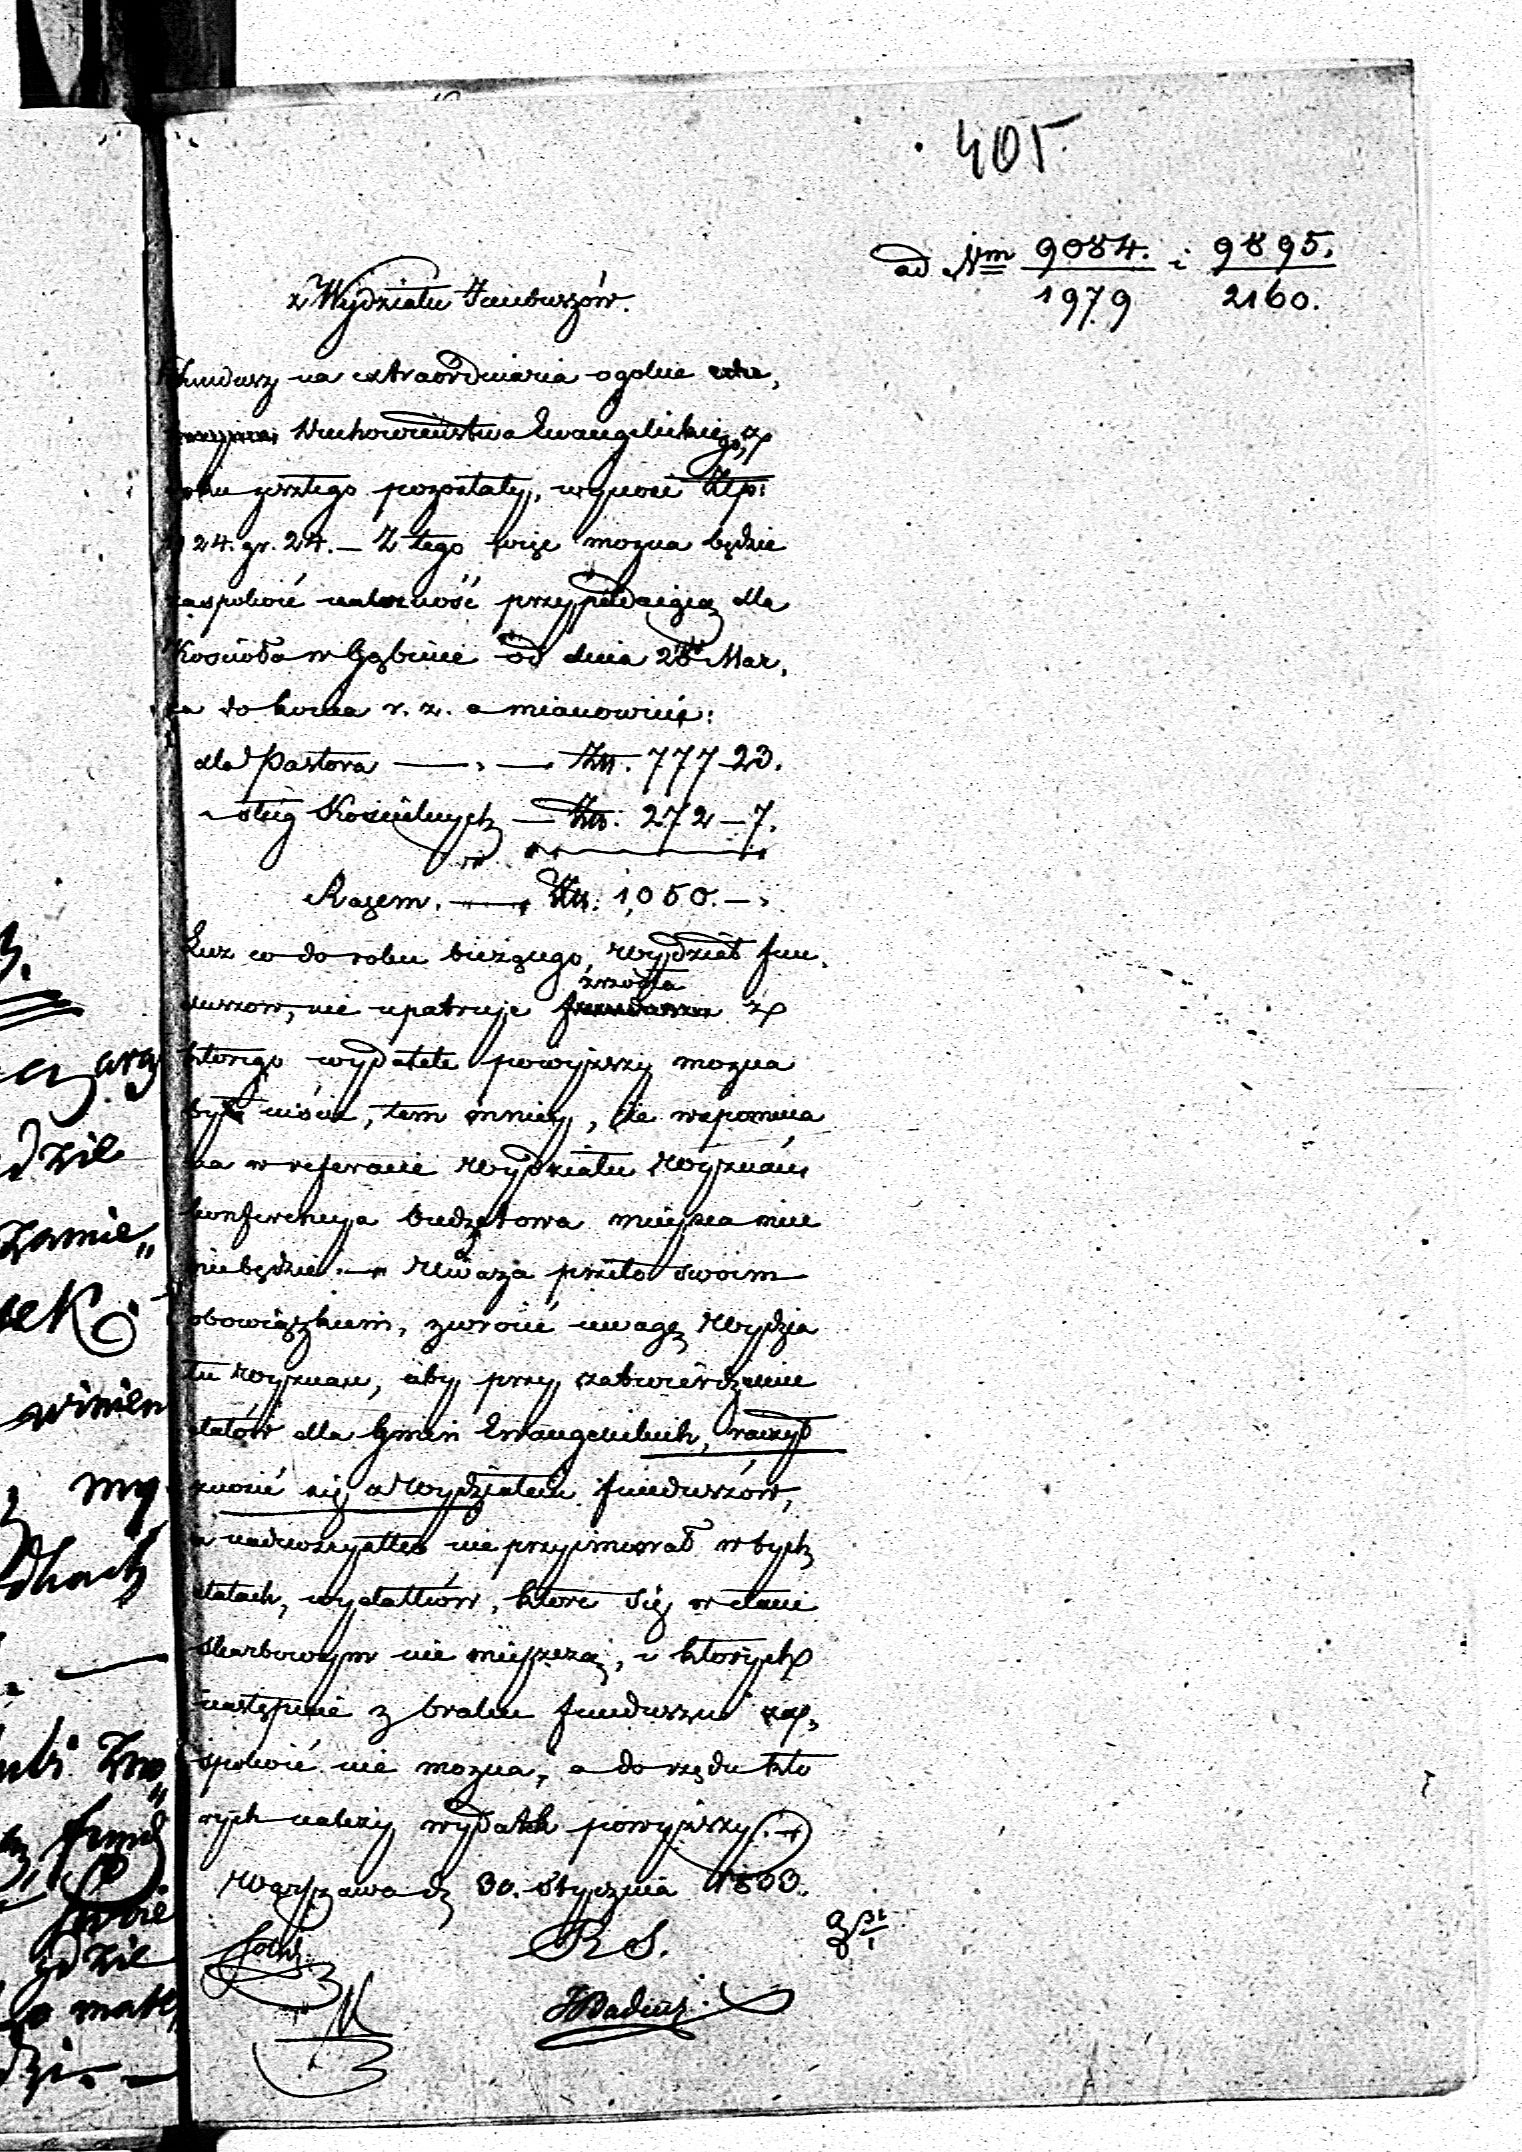 405.
ad Nrm 9084. i 9895.
1979 2160.
z Wydziału Funduszów.
Fundusz na extraordinaria ogolne
Duchowieństwa Ewangelickiego, z
roku zeszłego pozostały, wynosi Złp:
24. gr. 24. — Z tego więc mozna będzie
zaspokoić należność przypadaiącą dla
Kościoła w Gąbinie od dnia 28 Mar,
ca do konca r. z. a mianowicie:
dla Pastora — Złł. 777-23.
" sług Kościelnych — Złł. 272-7.
Razem. — Złł. 1,050.—
Lecz co do roku bieżącego, Wydział fun,
duszow, nie upatruje zrzodła z
ktorego wydatek powyższy mozna
by uiścić, tem mniey, że wspomnia
na w referacie Wydziału Wyznań,
konferencya budżetowa mieysca miec
niebędzie. — Uwaza przeto swoim
obowiązkiem, zwrocić uwagę Wydzia
łu Wyznan, aby przy zatwierdzeniu
etatów dla Gmin Ewangelickich, raczył
znosić się z Wydziałem funduszów,
a nadewszystko nie przyimował w tych
etatach, wydatków, ktore się w etacie
skarbowym nie mieszczą, i ktorych
następnie z braku funduszu zas,
pokoić nie mozna, a do rzędu kto
rych należy wydatek powyższy. —
Warszawa d. 30. Stycznia 1833.
R S.